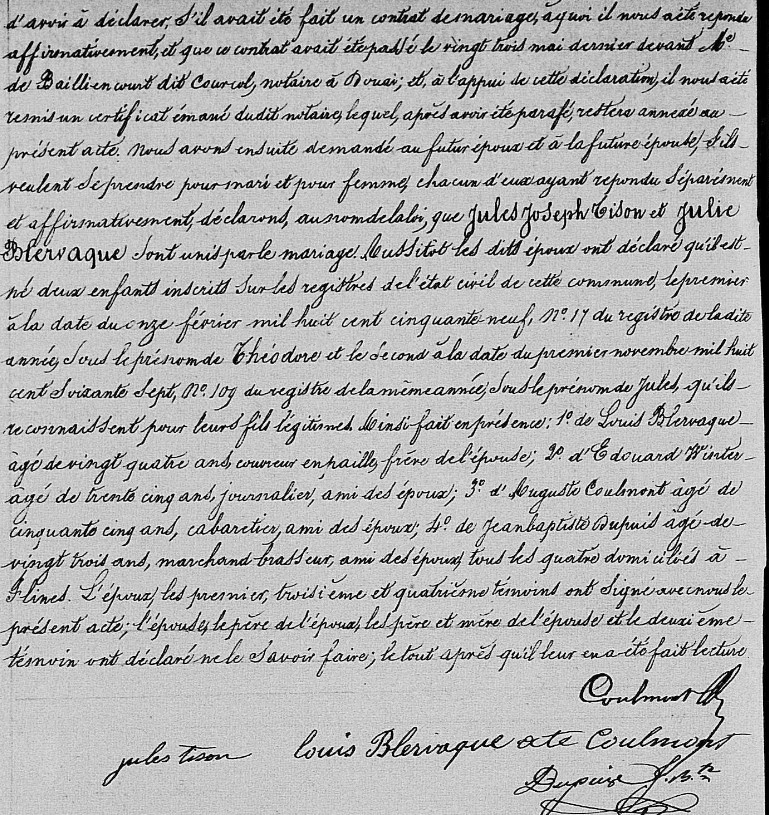 d'avoir à déclarer, s'il avait été fait un contrat de mariage, à quoi il nous a été repondu
affirmativement, et que ce contrat avait été passé le vingt trois mai dernier devant Me
de Bailliencourt dit Courcol, notaire à Douai; et, à l'appui de cette déclaration, il nous a été
remis un certificat émané dudit notaire, lequel, après avoir été parafé, restera annexé au
présent acte. Nous avons ensuite demandé au futur époux et à la future épouse, s'ils
veulent se prendre pour mari et pour femme, chacun d'eux ayant repondu séparément
et affirmativement, déclarons, au nom de la loi, que Jules Joseph Tison et Julie
Blervaque sont unis par le mariage. Aussitot les dits époux ont déclaré qu'il est
né deux enfants inscrits sur les registres de l'état civil de cette commune, le premier
à la date du onze février mil huit cent cinquante neuf, No. 17 du registre de la dite
année, sous le prénom de Théodore et le second à la date du premier novembre mil huit
cent soixante sept, No. 109 du registre de la même année, sous le prénom de Jules, qu'ils
reconnaissent pour leurs fils légitimes. Ainsi fait en présence; 1o. de Louis Blervaque
âgé de vingt quatre ans, couvreur en paille, frère de l'épouse; 2o. d'Edouard Winter
âgé de trente cinq ans, journalier, ami des époux; 3o. d'Auguste Coulmont âgé de
cinquante cinq ans, cabaretier, ami des époux; 4o. de Jean baptiste Dupuis âgé de
vingt trois ans, marchand brasseur, ami des époux, tous les quatre domiciliés à
Flines. L'époux, les premier, troisième et quatrième témoins ont signé avec nous le
présent acte; l'épouse, le père de l'époux, les père et mère de l'épouse et le deuxième
témoin ont déclaré ne le savoir faire; le tout après qu'il leur en a été fait lecture
Coulmont
jules tison louis Blervaque ate Coulmont
Dupuis J. Bte